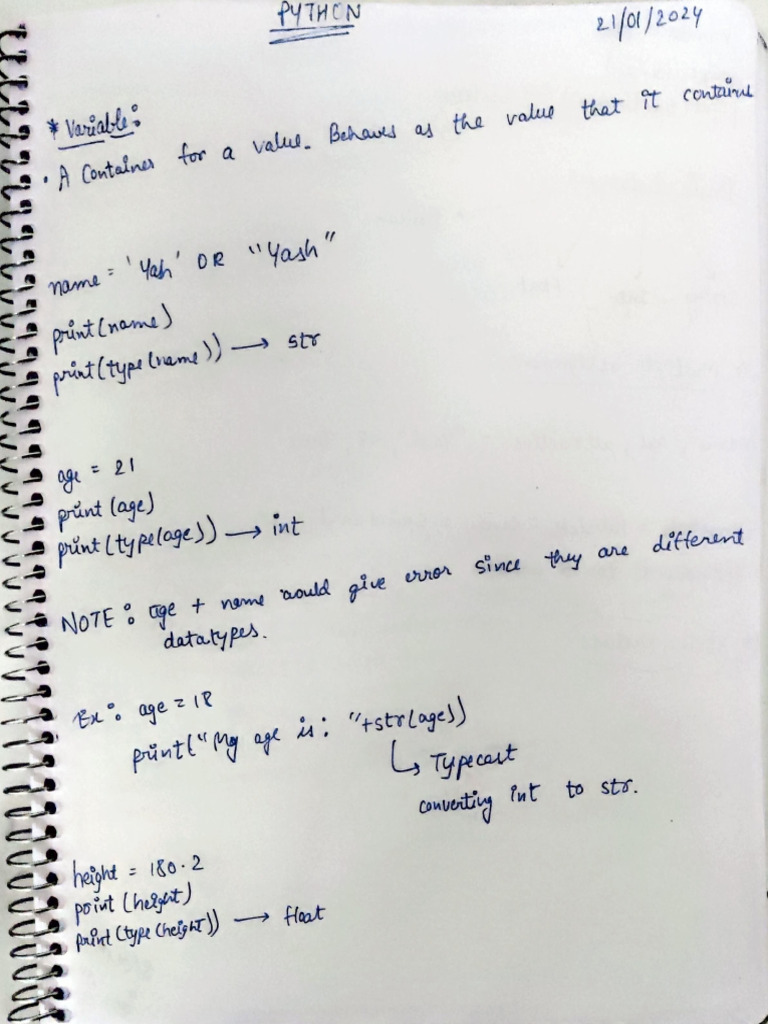 PYTHON
21/01/2024
* Variable:
• A Container for a value. Behaves as the value that it contains
name = 'Yash' OR "Yash"
print(name)
print(type(name)) → str
age = 21
print(age)
print(type(age)) → int
NOTE: age + name would give error since they are different
datatypes.
Ex: age = 18
print("My age is: "+str(age))
↳ Typecast
converting int to str.
height = 180.2
print(height)
print(type(height)) → float